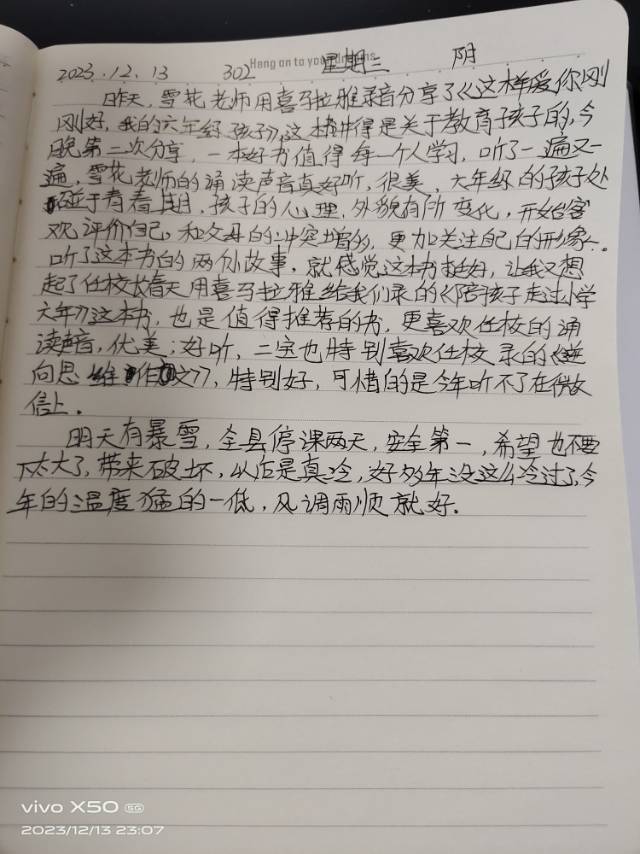 Hang on to your dreams
2023.12.13 302 星期三 阴
昨天,雪花老师用喜马拉雅录音分享了《这样爱你刚
刚好,我的六年级孩子》,这本书讲得是关于教育子孩子的,今
晚第二次分享,一本好书值得每一个人学习,听了一遍又一
遍,雪花老师的诵读声音真好听,很美,六年级的孩子处
于青春期,孩子的心理,外貌有所变化,开始喜
欢评价自己,和父母的冲突增多,更加关注自己的形象。
听了这本书的两个故事,就感觉这本书挺好,让我又想
起了任校长春天用喜马拉雅给我们录的《陪孩子走过小学
六年》这本书,也是值得推荐的书,更喜欢任校的诵
读声音,优美;好听,二宝也特别喜欢任校录的《逆
向思维作文》,特别好,可惜的是今年听不了在微
信上。
明天有暴雪,全县停课两天,安全第一,希望也不要
下太大了,带来破坏,从昨是真冷,好多年没这么冷过了,今
年的温度猛的一低,风调雨顺就好.
vivo X50 5G
2023/12/13 23:07